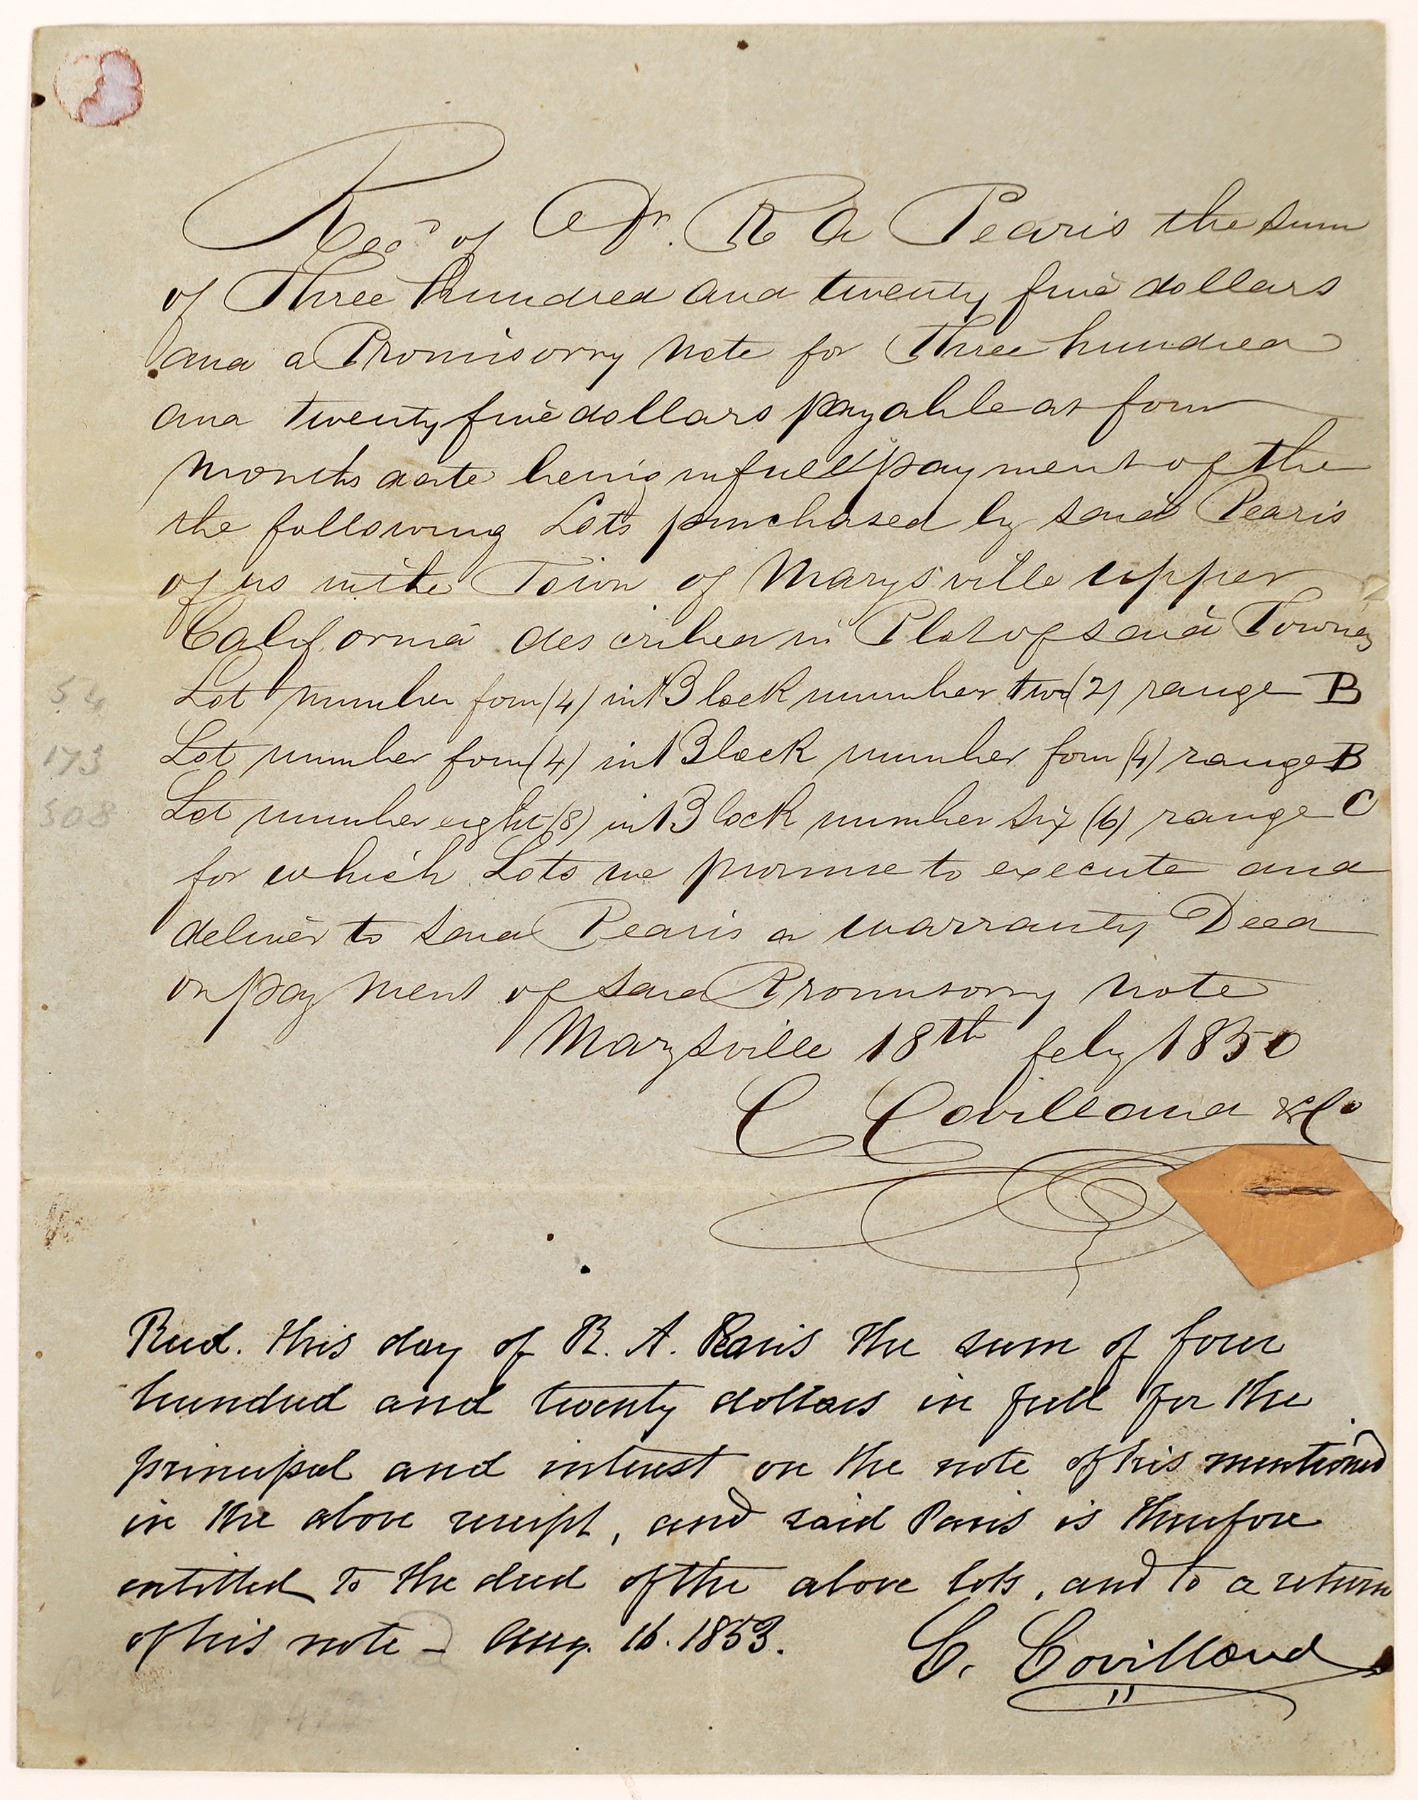 Recd of Dr. R A Pearis the sum
of Three hundred and twenty five dollars
and a Promisorry note for Three hundred
and twenty five dollars payable at four
months date being in full payment of the
the following Lots purchased by said Pearis
of us in the Town of Marysville upper
California described in Plat of said Town as
Lot number four (4) in Block number two (2) range B
Lot number four (4) in Block number four (4) range B
Lot number eight (8) in Block number six (6) range C
for which Lots we promise to execute and
deliver to said Pearis a warranty Deed
on payment of said Promisorry note
Marysville 18th feby 1850
C Covillaud & Co
54
173
508
Recd. this day of R. A. Pearis the sum of four
hundred and twenty dollars in full for the
principal and interest on the note of his mentioned
in the above receipt, and said Paris is therefore
entitled to the deed of the above lots, and to a return
of his note - Aug. 16. 1853.
C. Covillaud